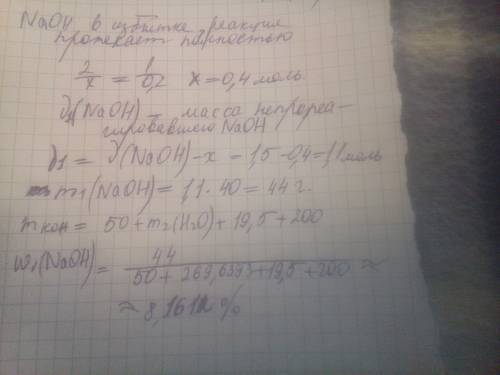 NaOH в избытке, реакция
протекает полностью
2/x = 1/0,2 x = 0,4 моль.
ν1(NaOH) – масса непрореа-
гировавшего NaOH
ν1 = ν(NaOH) – x = 1,5 – 0,4 = 1,1 моль
m1(NaOH) = 1,1 · 40 = 44 г.
mкон = 50 + m2(H2O) + 19,5 + 200
w1(NaOH) = 44 / 50 + 269,6393 + 19,5 + 200 ≈
≈ 8,1612 %